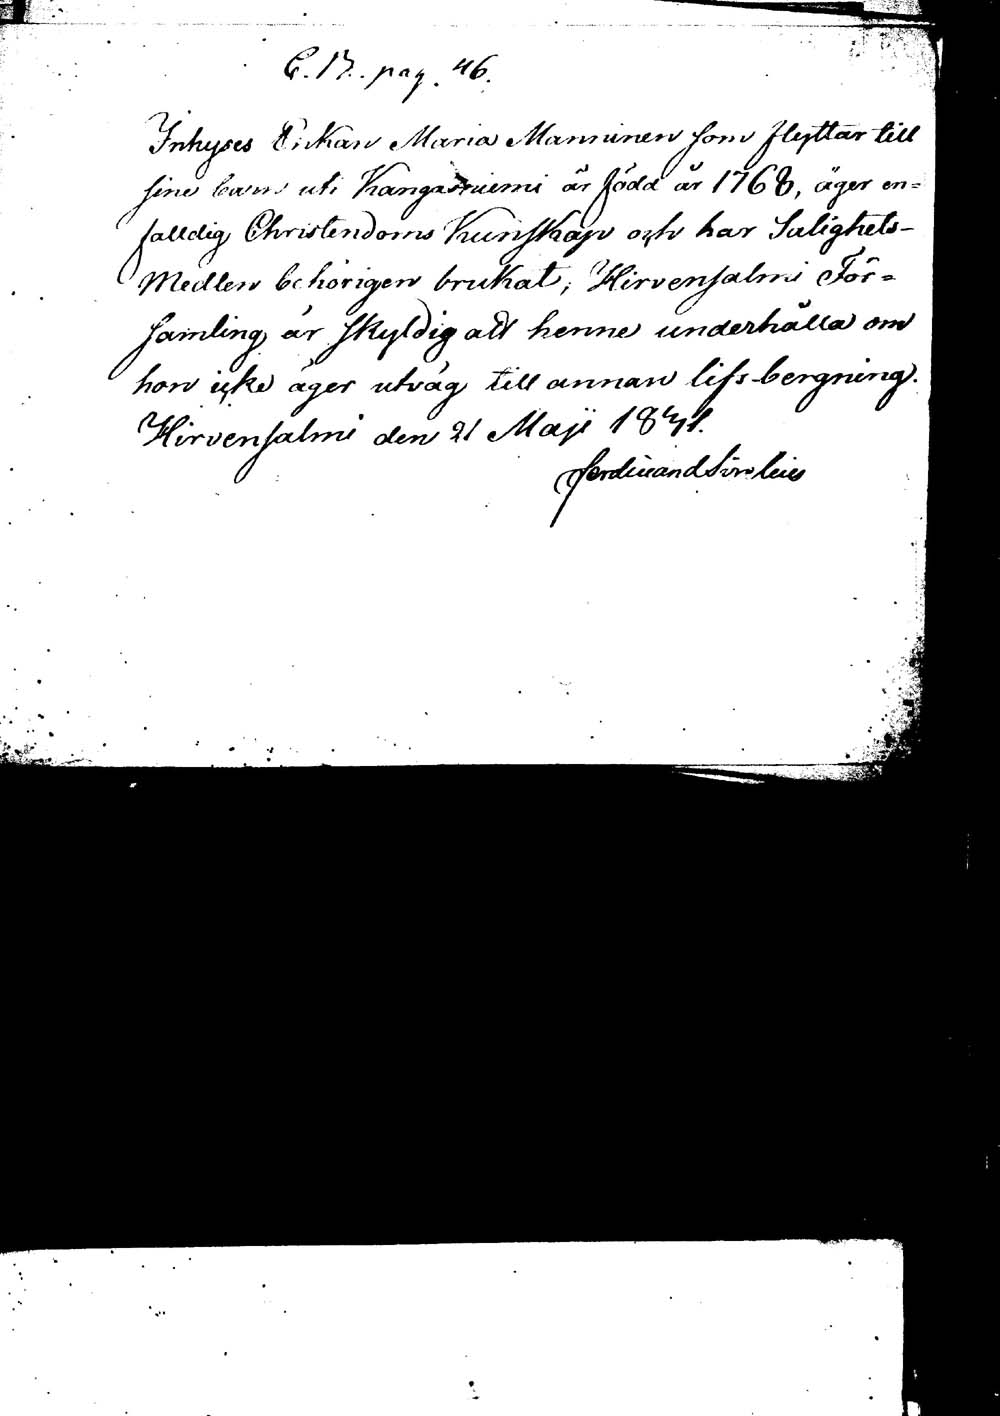 C.B. pag. 46.
Inhyses Enkan Maria Manninen som flyttar till
sine barn uti Kangasniemi är född år 1768, äger en=
falldig Christendoms Kunskap och har Salighets-
Medlen behörigen brukat; Hirvensalmi För=
samling är skyldig att henne underhålla om
hon icke äger utväg till annan lifs-bergning.
Hirvensalmi den 21 Maji 1841.
Ferdinand